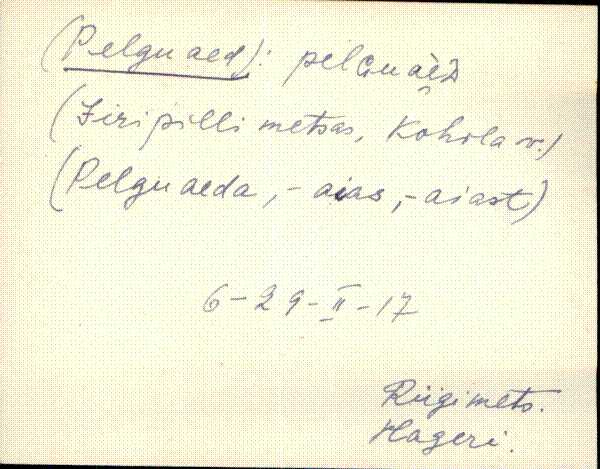 (Pelgu aed): pelGu aèD
(Jiripilli metsas, Kohila v.)
(Pelgu aeda, -aias, -aiast)
6-29-II-17
Riigimets.
Hageri.